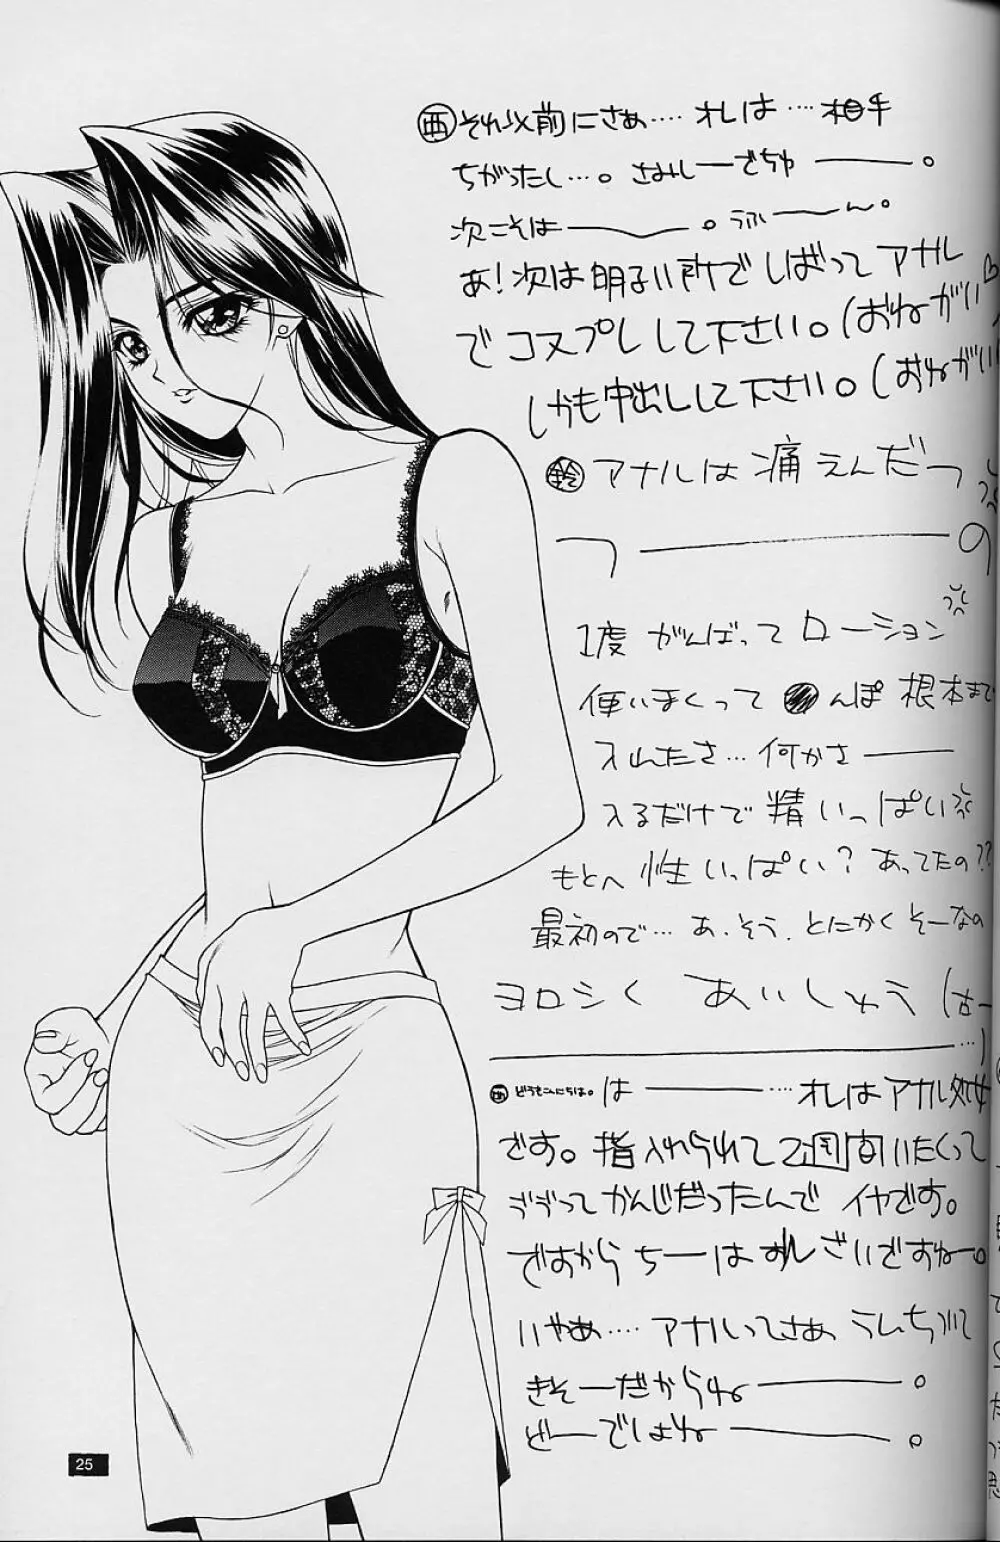 西 それ以前にさぁ‥‥オレは‥‥相手
ちがったし…。さみしーでちゅ――。
次こそは――。うふーん。
あ!次は明るい所でしばってアナル
でコスプレして下さい。(おねがい♡
しかも中出しして下さい。(おねがい
鈴 アナルは痛えんだっ
つ――の
1度がんばってローション
使いまくって●んぽ根本まで
入れたさ…何かさ――
入るだけで精いっぱい
もとへ性いっぱい?あってたの??
最初ので…あ、そう、とにかくそーなの
ヨロシく あいしゅう
西 どうもこんにちは。は――‥‥オレはアナル処女
です。指入れられて2週間いたくって
ブブってかんじだったんでイヤです。
ですからちーは
いやぁ‥‥アナルってさぁ
きそーだからね――。
どーでしょね――。
25